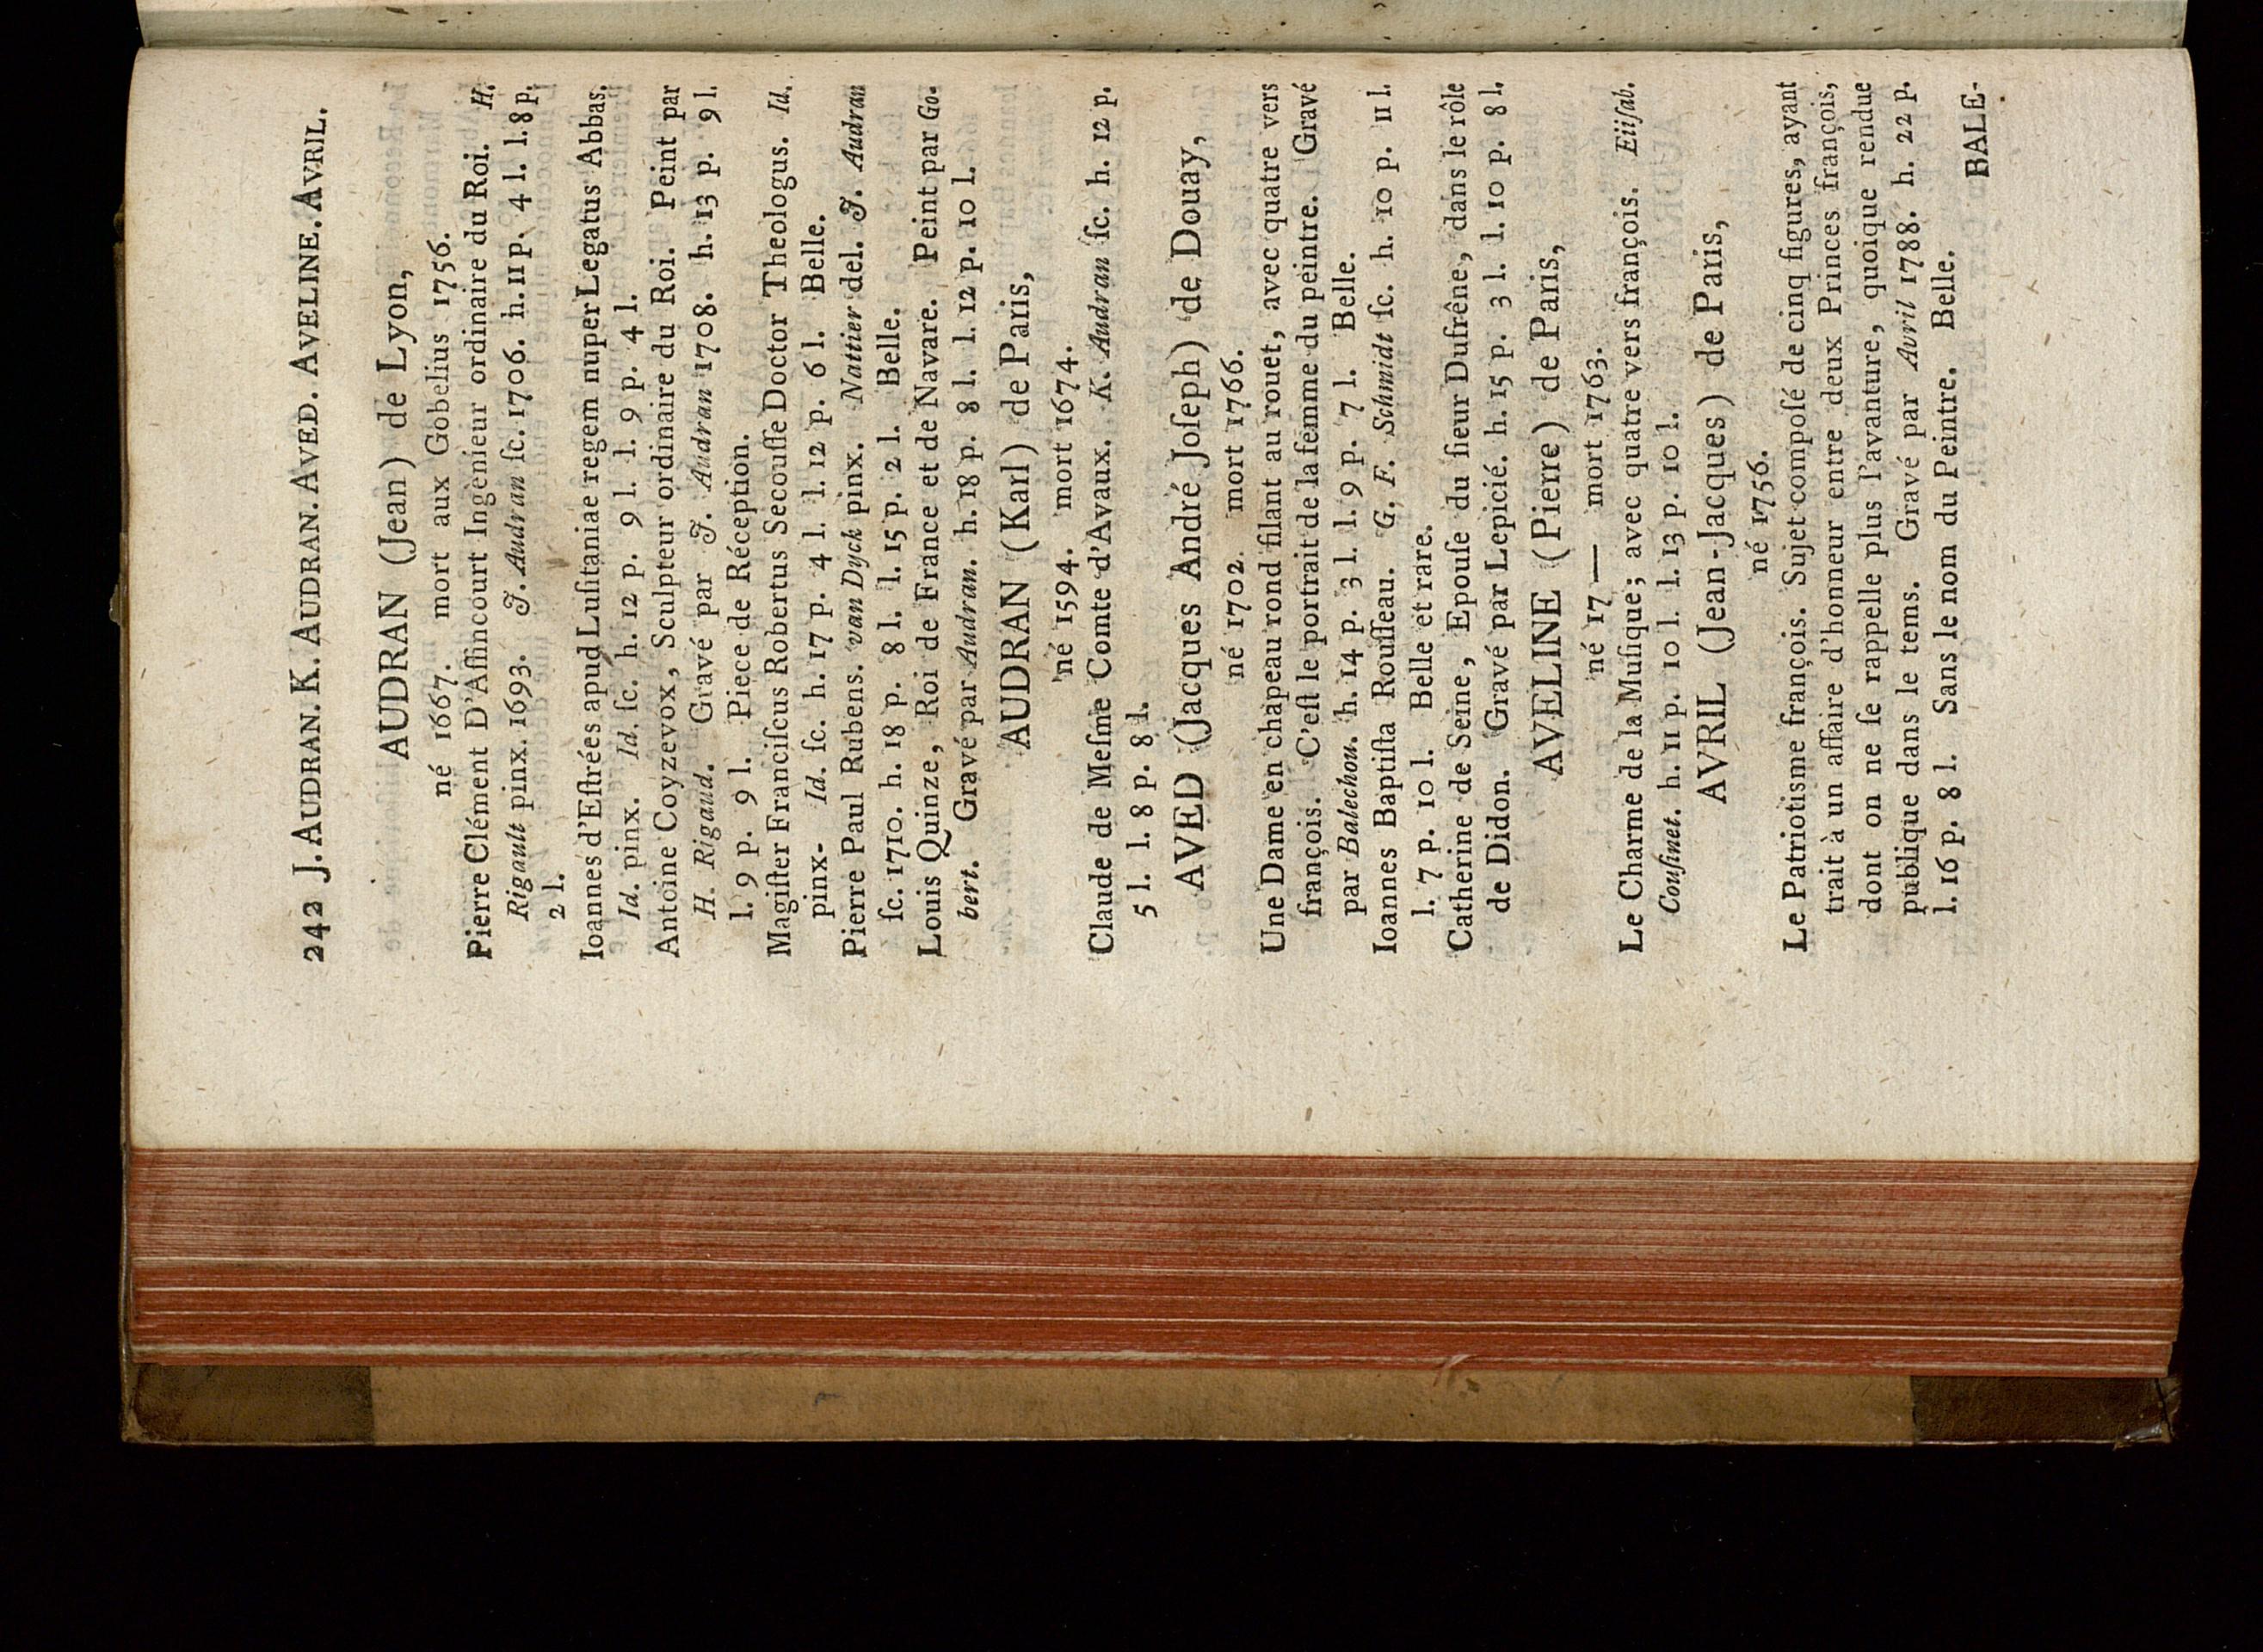 242 J. AUDRAN. K. AUDRAN. AVED. AVELINE. AVRIL.
AUDRAN (Jean) de Lyon,
né 1667. mort aux Gobelius 1756.
Pierre Clément D'Affincourt Ingènieur ordinaire du Roi. H.
Rigault pinx. 1693. J. Audran ſc. 1706. h. 11 p. 4 l. l. 8 p.
2 l.
Ioannes d'Eſtrées apud Luſitaniae regem nuper Legatus Abbas.
Id. pinx. Id. ſc. h. 12 p. 9 l. l. 9 p. 4 l.
Antoine Coyzevox, Sculpteur ordinaire du Roi. Peint par
H. Rigaud. Gravé par J. Audran 1708. h. 13 p. 9 l.
l. 9 p. 9 l. Piece de Réception.
Magiſter Franciſcus Robertus Secouſſe Doctor Theologus. Id.
pinx- Id. ſc. h. 17 p. 4 l. l. 12 p. 6 l. Belle.
Pierre Paul Rubens. van Dyck pinx. Nattier del. J. Audran
ſc. 1710. h. 18 p. 8 l. l. 15 p. 2 l. Belle.
Louis Quinze, Roi de France et de Navare. Peint par Go-
bert. Gravé par Audran. h. 18 p. 8 l. l. 12 p. 10 l.
AUDRAN (Karl) de Paris,
né 1594. mort 1674.
Claude de Meſme Comte d'Avaux. K. Audran ſc. h. 12 p.
5 l. l. 8 p. 8 l.
AVED (Jacques André Joſeph) de Douay,
né 1702. mort 1766.
Une Dame en chapeau rond filant au rouet, avec quatre vers
françois. C'eſt le portrait de la femme du peintre. Gravé
par Balechou. h. 14 p. 3 l. l. 9 p. 7 l. Belle.
Ioannes Baptiſta Rouſſeau. G. F. Schmidt ſc. h. 10 p. 11 l.
l. 7 p. 10 l. Belle et rare.
Catherine de Seine, Epouſe du ſieur Dufrêne, dans le rôle
de Didon. Gravé par Lepicié. h. 15 p. 3 l. l. 10 p. 8 l.
AVELINE (Pierre) de Paris,
né 17— mort 1763.
Le Charme de la Muſique; avec quatre vers françois. Eiiſab.
Couſinet. h. 11 p. 10 l. l. 13 p. 10 l.
AVRIL (Jean-Jacques) de Paris,
né 1756.
Le Patriotisme françois. Sujet compoſé de cinq figures, ayant
trait à un affaire d'honneur entre deux Princes françois,
dont on ne ſe rappelle plus l'avanture, quoique rendue
publique dans le tems. Gravé par Avril 1788. h. 22 p.
l. 16 p. 8 l. Sans le nom du Peintre. Belle.
BALE-